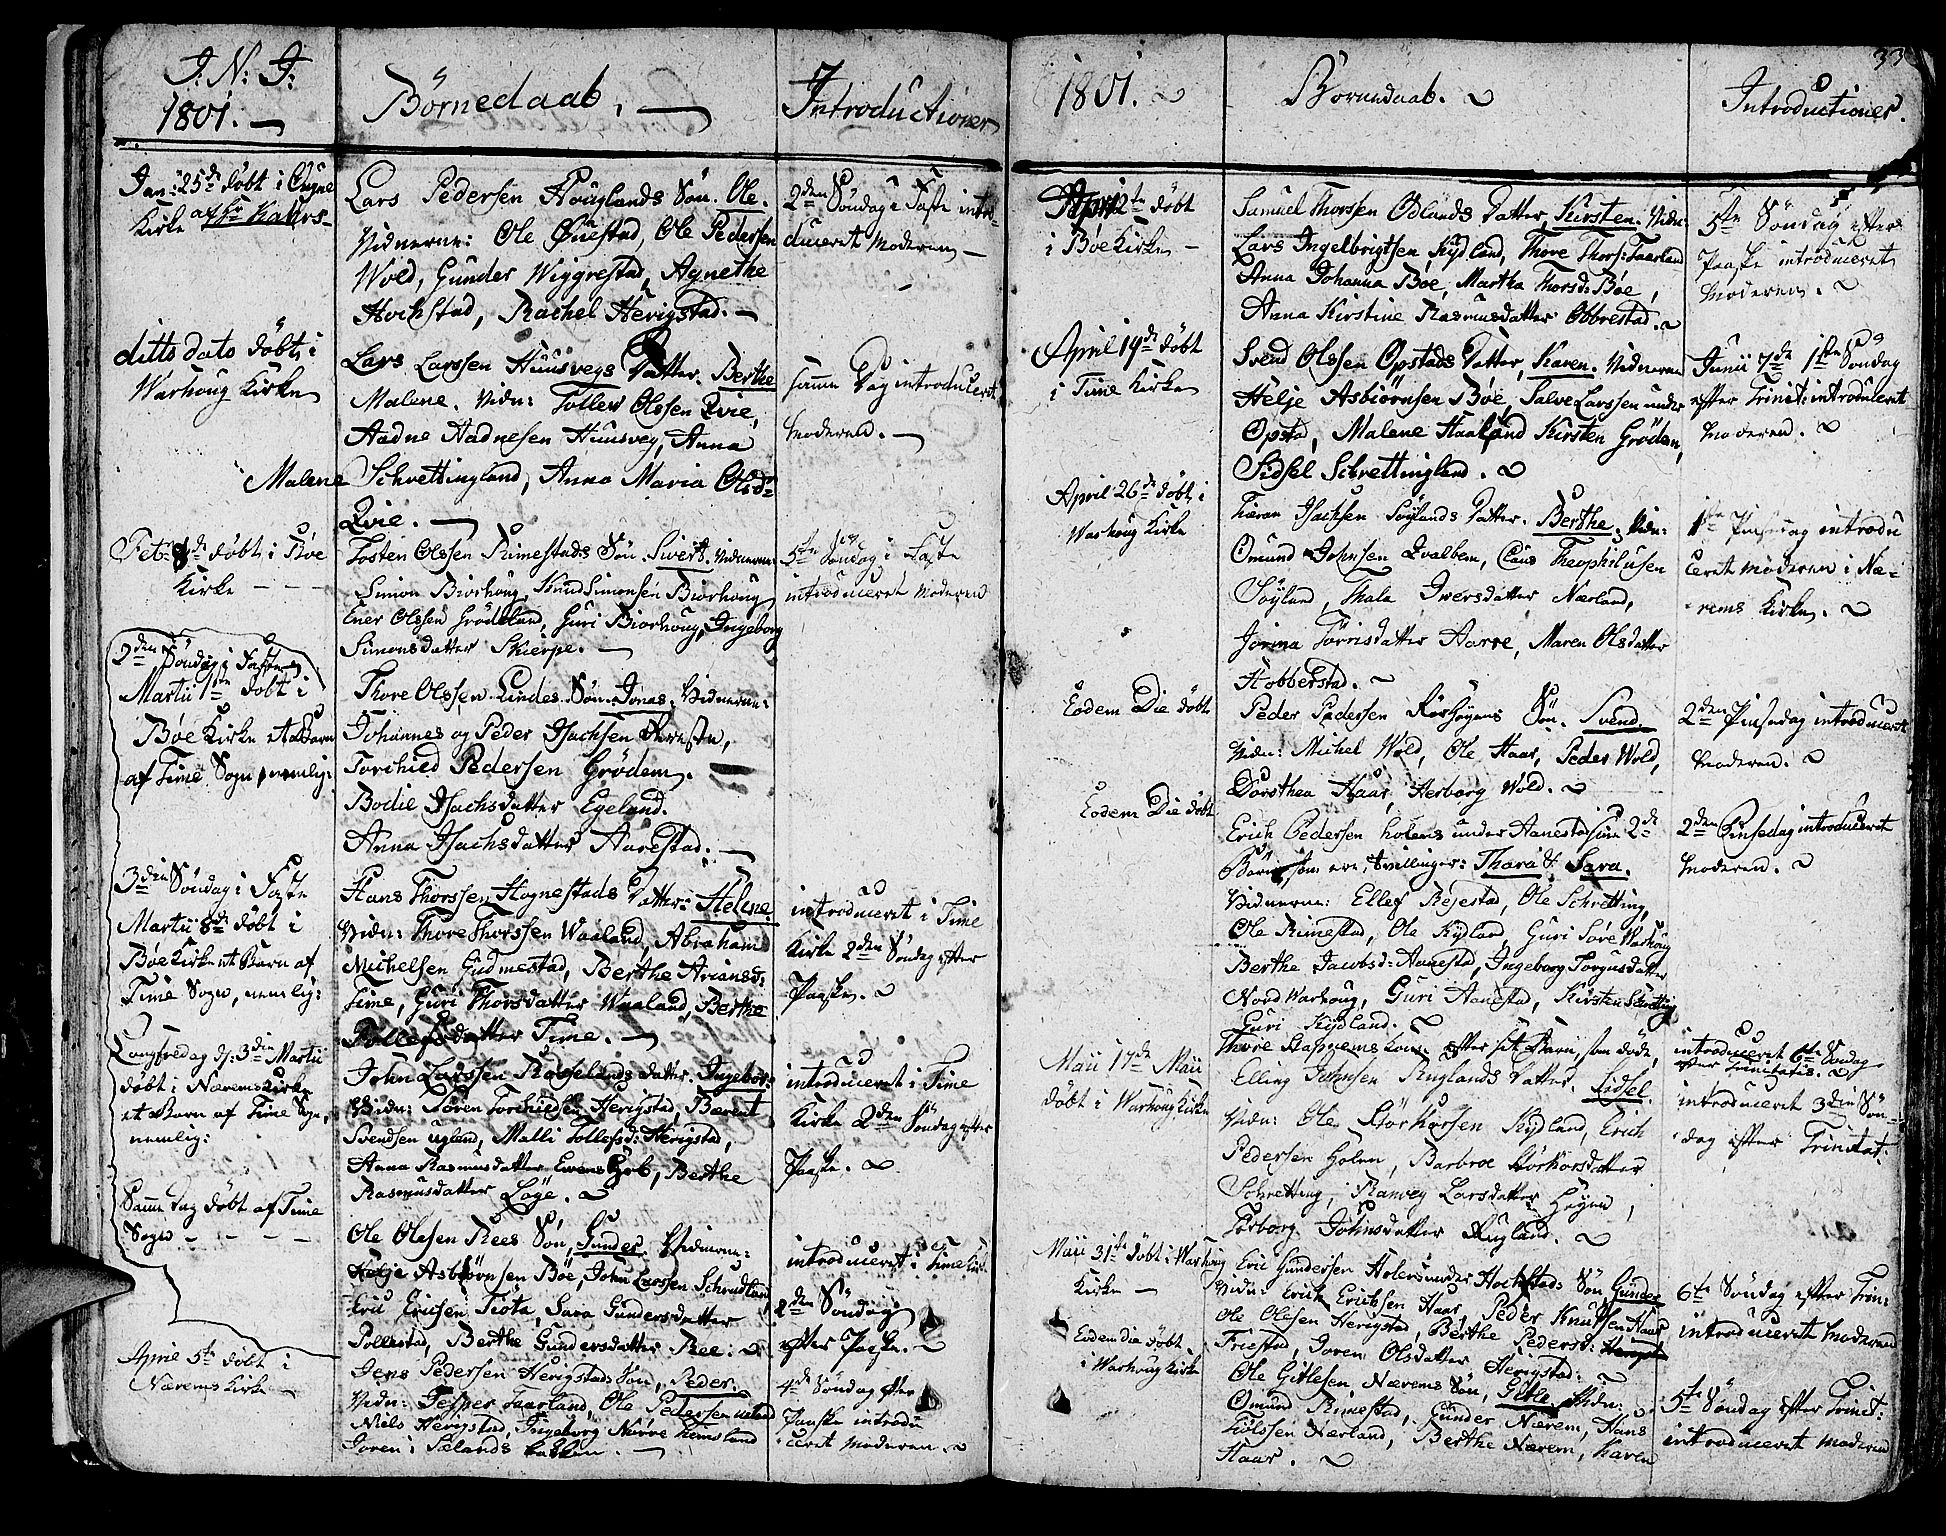 J: N: J:
1801.
Børnedaab.
Introductioner
Jan: 25de døbt i Ougne
Kirke af Hr Kahrs
Lars Pedersen Houglands Søn. Ole.
Vidnerne: Ole Øuestad, Ole Pedersen
Wold, Gunder Wiggrestad, Agnethe
Hochstad, Rachel Herigstad.
2den Søndag i Faste intro-
duceret Moderen
ditto dato døbt i
Warhoug Kirke
Lars Larssen Huusvegs Datter. Berthe
Malene. Vidn: Tollew Olssen Qvie,
Aadne Aadnesen Huusveg, Anna
Malene Schrettingland, Anna Maria Olsd:
Qvie.
samme Dag introduceret
Moderen.
Febr: 8de døbt i Bøe
Kirke
Tosten Olssen Rimestads Søn. Sivert. Vidnerne:
Simon Biorhoug, Knud Simonsen Biorhoug
Ener Olssen Grødeland, Guri Biorhoug, Ingeborg
Simonsdatter Skierpe.
5te Søndag i Faste
introduceret Moderen
2den Søndag i Fasten
Martii 1ste døbt i
Bøe Kirke et Barn
af Time Sogn, nemlig:
Thore Olssen Lindes Søn. Jonas. Vidnerne:
Johannes og Peder Isachsen
Torchild Pedersen Grødem.
Bodil Isachsdatter Egeland.
Anna Isachsdatter Aarestad.
3die Søndag i Faste
Martii 8de døbt i
Bøe Kirke et Barn af
Time Sogn, nemlig:
Hans Thorssen Hognestads Datter: Helene
Vidn: Thore Thorssen Waaland, Abraham
Michelsen Gudmestad, Berthe Ariansd:
Time, Guri Thorsdatter Waaland, Berthe
Tollefsdatter Time.
introduceret i Time
Kirke 2den Søndag efter
Paaske.
Langfredag d: 3die Martii
døbt i Nærems Kirke
et Barn af Time Sogn,
nemlig:
John Larssen Rosselands Datter. Ingebor:
Vidn: Søren Torchildsen Herigstad, Bærent
Bendsen ugland, Malli Tollefsd: Herigstad,
Anna Rasmusdatter Hob, Berthe
Rasmusdatter Løge.
introduceret i Time
Kirke 2den Søndag efter
Paaske.
Samme Dag døbt af Time
Sogn
Ole Olssen Rees Søn, Gunder. Vidnerne:
Helje Asbiørnsen Bøe, John Larssen
Eric Ericsen Tiøta, Sara Gundersdatter
Pollestad, Berthe Gundersdatter Ree:
introduceret i Time Kirke
2den Søndag
efter Paaske.
April 5te døbt i
Nærems Kirke
Jens Pedersen Herigstads Søn, Peder.
Vidn: Jesper Taarland, Ole Pedersen
Niels Herigstad, Ingeborg Nørre
Joren i Sælands bakken.
4de Søndag efter
Paaske introdu
ceret Moderen.
33
1801.
Børnedaab.
Introductioner.
April 12te døbt
i Bøe Kirke
Samuel Thorssen Odlands Datter, Kirsten. Vidn:
Lars Ingelbrigtsen Kydland, Thore Thors: Taarland
Anna Johanna Boe, Martha Thorsd: Bøe,
Anna Kirstine Rasmusdatter Obbrestad.
5te Søndag efter
Paaske introduceret
Moderen.
April 19de døbt
i Time Kirke
Svend Olssen Opstads Datter, Karen. Vidnerne
Helje Asbiørnsen Bøe, Salve Larssen under
Opstad, Malene Haaland Kirsten Grødem,
Sidsel Schrettingland.
Junii 7de 1ste Søndag
efter Trinit: introduceret
Moderen.
April 26de døbt i
Warhoug Kirke
Isachsen Søylands Datter. Berthe. Vidn:
Omund Johnsen Qvalbem, Claus Theophilusen
Søyland, Thala Iwersdatter Nærland,
Jorina Tørrisdatter Aarre, Maren Olsdatter
Hobberstad.
1ste Pinsedag introdu
ceret Moderen i Næ-
rems Kirke.
Eodem Die døbt
Peder Pedersen Søn. Svend.
Vidn: Michel Wold, Ole Haar, Peder Wold,
Dorothea Haar, Herborg Wold.
2den Pinsedag introduceret
Moderen.
Eodem Die døbt
Erich Pedersen Holens under Aanestad sine 2de
Børn, som ere, tvillinger: Thara & Sara.
Vidnerne: Ellef Rejestad, Ole Schretting,
Ole Rimestad, Ole Kydland, Guri Søre Warhoug
Berthe Jacobsd: Aanestad, Ingeborg Torgusdatter
Nord Warhoug, Guri Aanestad, Kirsten Schretting
Guri Kydland.
2den Pinsedag introduceret
Moderen.
Thore Kone efter sit Barn, som døde,
introduceret 6te Søndag
efter Trinitatis.
Maii 17de Maii
døbt i Warhoug Kirke
Elling Johnsen Ruglands Datter. Sidsel.
Vidn: Ole Størkorsen Kydland, Erich
Pedersen Holen, Barbroe Størkorsdatter
Schretting, Ranvey Larsdatter Høyen,
Torborg Johnsdatter Rugland.
introduceret 3die Søn-
dag efter Trinitat:
Maii 31te døbt i Warhoug
Kirke
Eric Gundersen Holens under Hochstads Søn Gunder
Vidn: Erich Erichsen Haar, Peder Knudsen Haar
Ole Olesen Herigstad, Berthe Pedersd:
Friestad, Joren Olsdatter Herigstad:
6te Søndag efter Trin:
introduceret Moderen
Eodem die døbt
i Warhoug Kirke
Ole Gitlesen Nærems Søn, Gitle. Vidn:
Omund Rimestad, Gunder Nærem, Hans
Nærland, Berthe Nærem, Karen
Haar.
5te Søndag efter Trinit:
introduceret Moderen